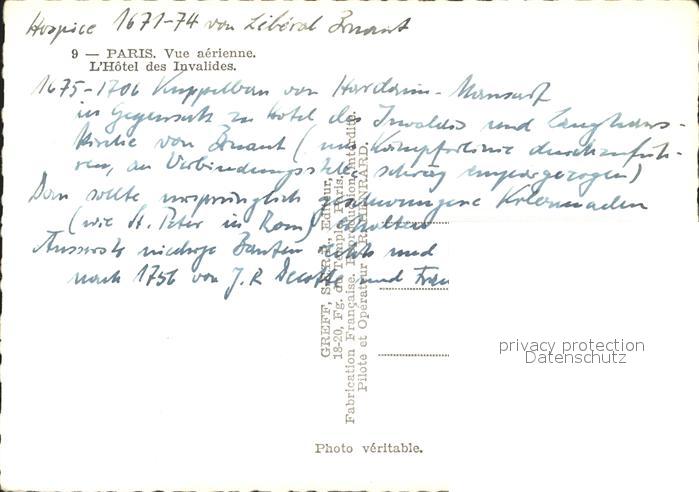 Hospice 1671-74 von Libéral Bruant
9 — PARIS. Vue aérienne.
L'Hôtel des Invalides.
1675-1706 Kuppelbau von Hardouin-Mansart
im Gegensatz zu Hotel des Invalides und Langhaus-
kirche von Bruant (um Kämpferlinie durchzufüh-
ren, an Verbindungsstelle schräg emporgezogen)
Dom sollte ursprünglich geschwungene Kolonnaden
(wie St. Peter in Rom) erhalten
Äusserste niedrige Bauten rechts und
nach 1756 von J. R Decotte und
GREFF, Editeur,
18-20, Fg. du Temple, Paris.
Fabrication Française. Reproduction Interdite.
Pilote et Opérateur R. HENRARD.
privacy protection
Datenschutz
Photo véritable.